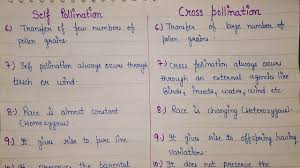 Self Pollination
6.) Transfer of few number of
pollen grains.
7.) Self pollination always occurs through
touch or wind.
8.) Race is almost constant
(Homozygous)
9.) It gives rise to pure line
10.) It preserves the parental
Cross pollination
6.) Transfer of large number of
pollen grains.
7.) Cross pollination always occurs
through an external agencies like
Birds, insects, water, wind etc
8.) Race is changing (Heterozygous)
9.) It gives rise to offspring having
variations.
10.) It does not preserve the